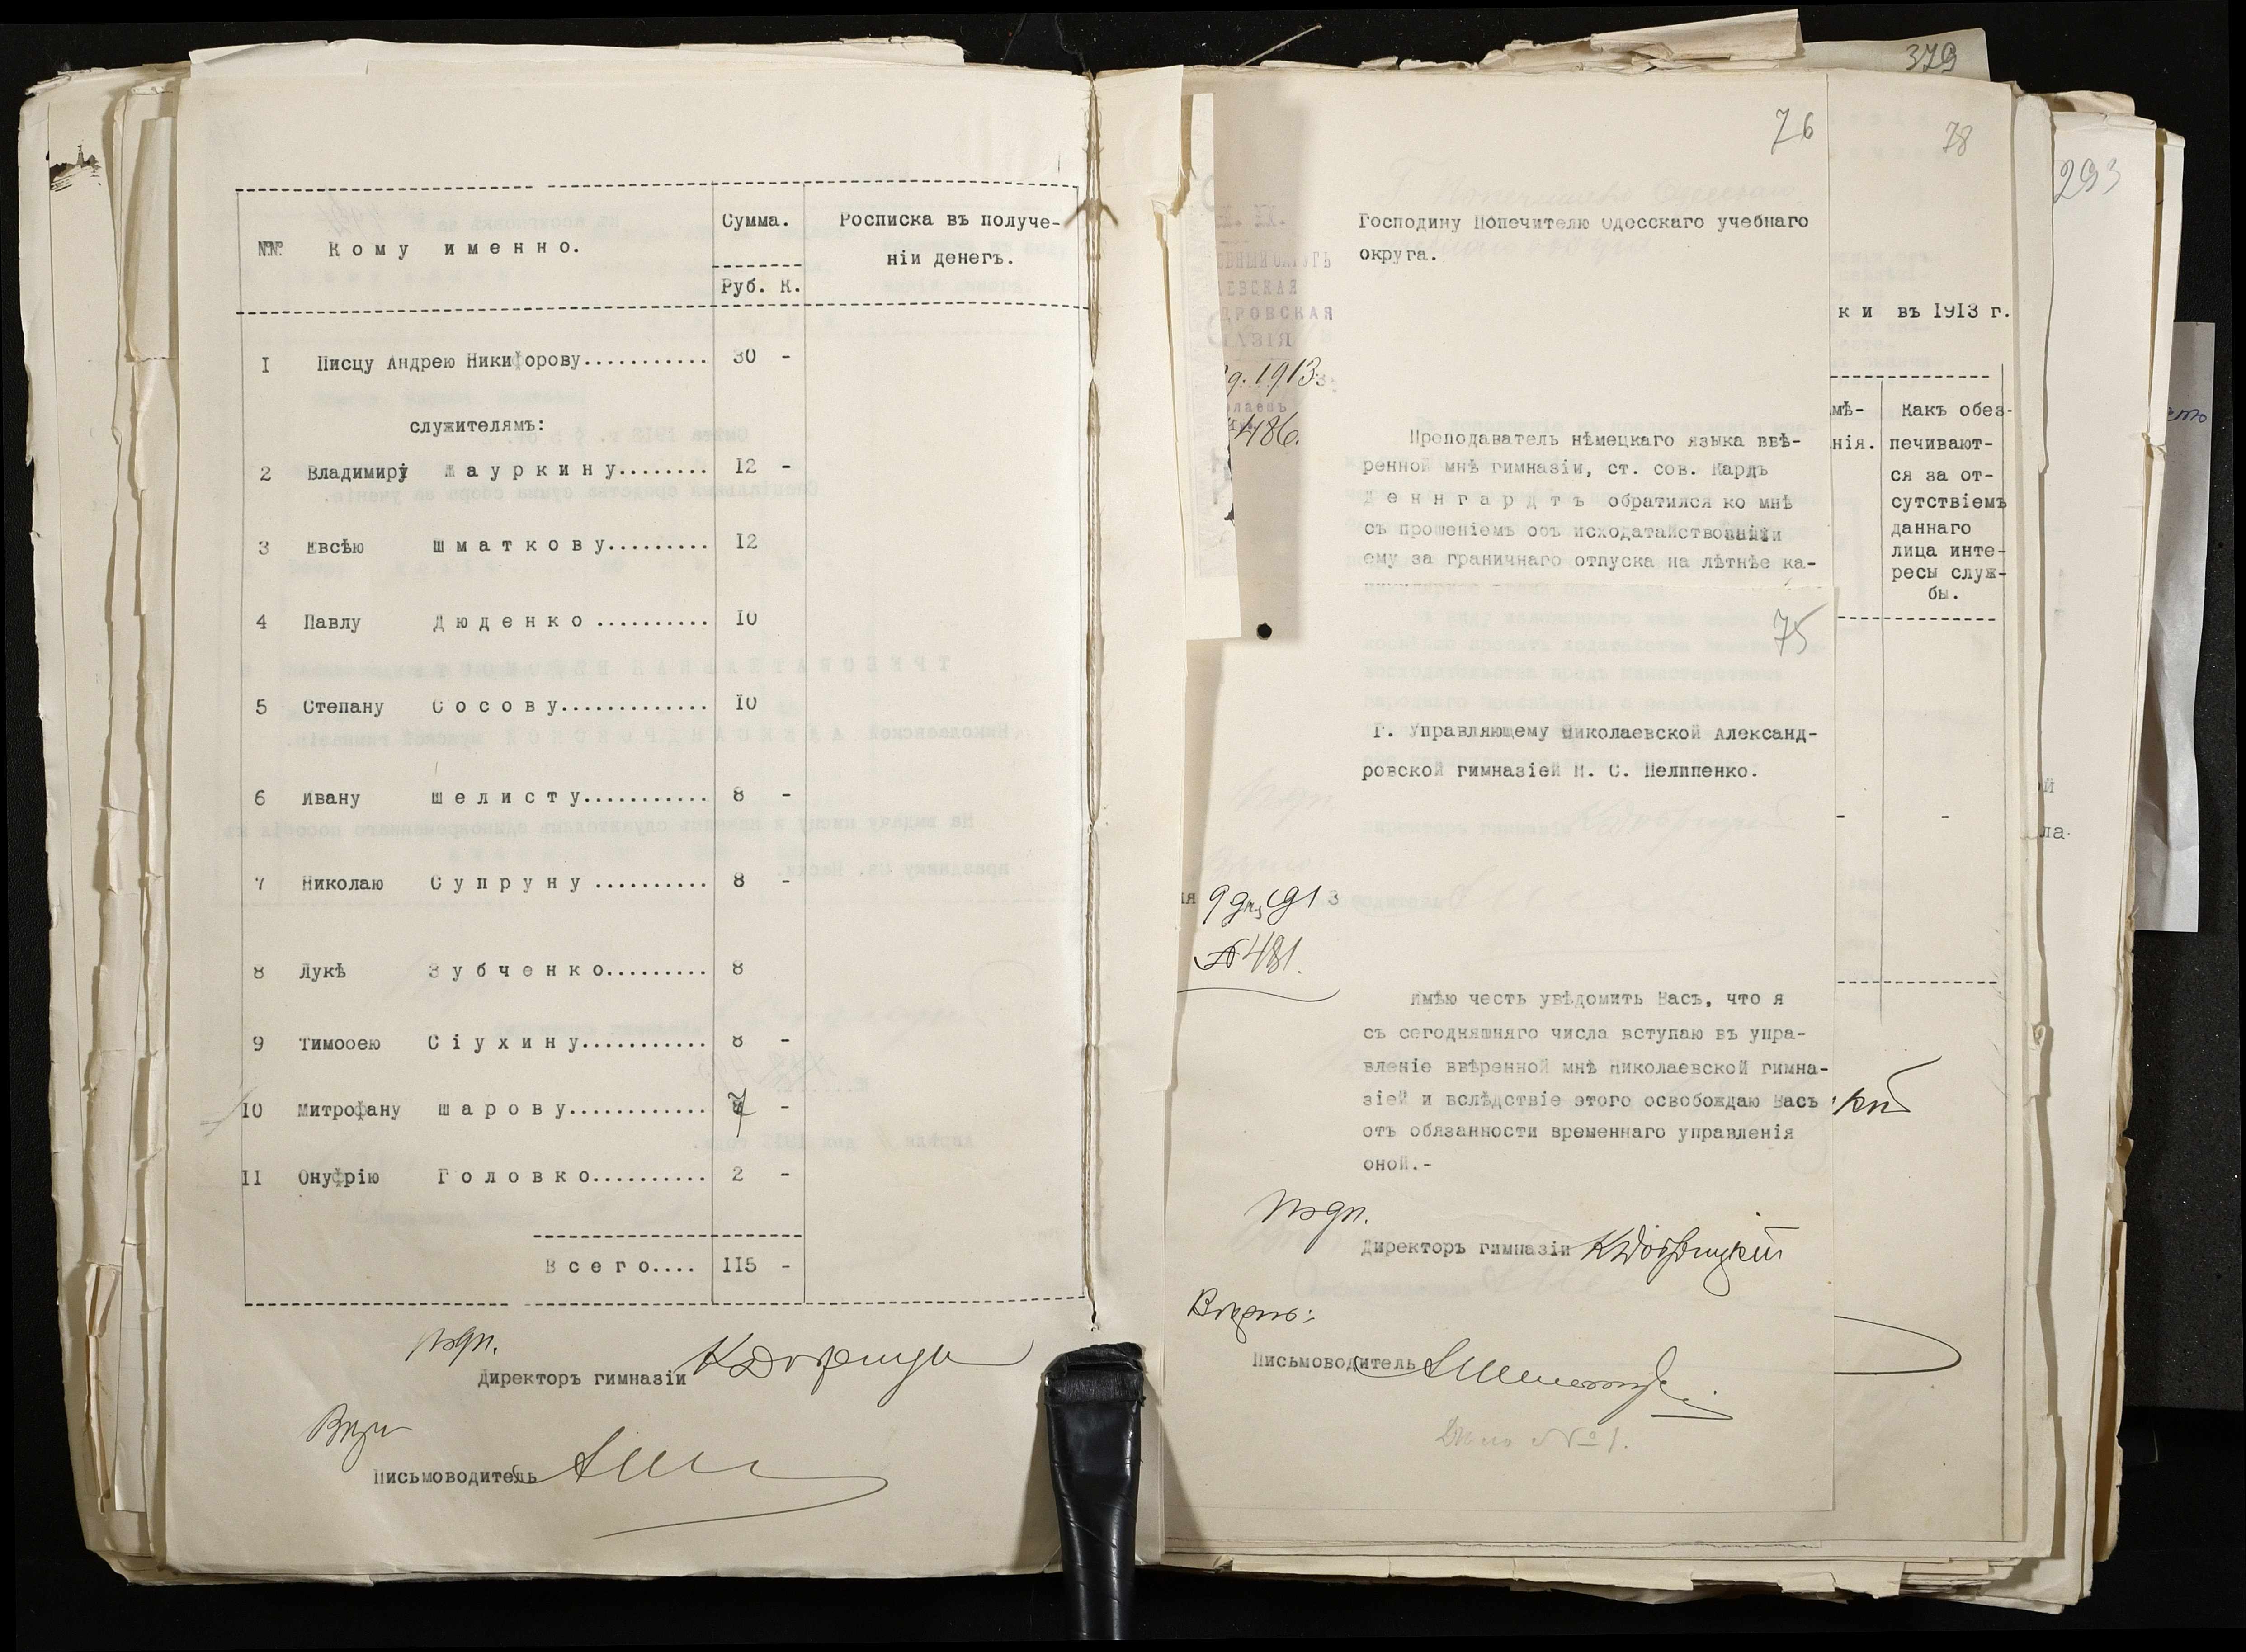 №№ Кому именно. Сумма. Росписка въ получе-
ніи денегъ.
Руб. К.
I Писцу Андрею Никифорову........... 30 -
служителямъ:
2 Владимиру Жауркину........ 12 -
3 Евсѣю Шматкову......... 12
4 Павлу Дюденко .......... 10
5 Степану Сосову............. 10
6 Ивану Шелисту........... 8 -
7 Николаю Супруну .......... 8 -
8 Лукѣ Зубченко......... 8
9 Тимофею Сіухину........... 8 -
10 Митрофану Шарову............ 7 -
II Онуфрію Головко.......... 2 -
Всего.... 115 -
подп.
Директоръ гимназіи
Письмоводитель
379
76
78
293
Господину Попечителю Одесскаго учебнаго
округа.
1913
486.
Преподаватель нѣмецкаго языка ввѣ-
ренной мнѣ гимназіи, ст. сов. Карлъ
Деннгардтъ обратился ко мнѣ
съ прошеніемъ объ исходатайствованіи
ему за граничнаго отпуска на лѣтнѣе ка-
75
Г. Управляющему Николаевской Александ-
ровской гимназіей Н. С. Пелипенко.
1913
№ 481.
Имѣю честь увѣдомить Васъ, что я
съ сегодняшняго числа вступаю въ упра-
вленіе ввѣренной мнѣ Николаевской гимна-
зіей и вслѣдствіе этого освобождаю Васъ
отъ обязанности временнаго управленія
оной.-
подп.
Директоръ гимназіи
Вѣрно:
Письмоводитель
Дѣло № 1.
ки въ 1913 г.
мѣ-
нія.
Какъ обез-
печивают-
ся за от-
сутствіемъ
даннаго
лица инте-
ресы служ-
бы.